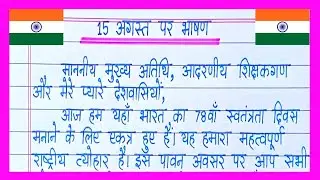 15 अगस्त पर भाषण
माननीय मुख्य अतिथि, आदरणीय शिक्षकगण
और मेरे प्यारे देशवासियों,
आज हम यहाँ भारत का 78वाँ स्वतंत्रता दिवस
मनाने के लिए एकत्र हुए हैं। यह हमारा महत्वपूर्ण
राष्ट्रीय त्योहार है। इस पावन अवसर पर आप सभी